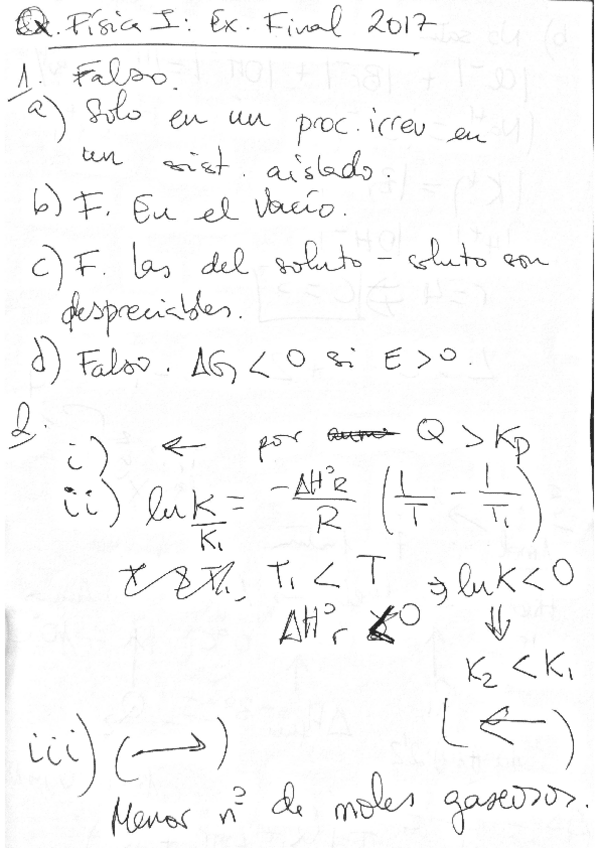 Q. Física I: Ex. Final 2017
1. Falso.
a) Solo en un proc. irrev en
un sist. aislado.
b) F. En el vacío.
c) F. Las del soluto - soluto son
despreciables.
d) Falso. ΔG < 0 si E > 0.
2.
i) ← por Q > Kp
ii) ln K/K₁ = -ΔH°r/R (1/T - 1/T₁)
T₁ < T ⇒ ln K < 0
ΔH°r < 0 ⇓
K₂ < K₁
(←)
iii) (→)
Menor nº de moles gaseosos.